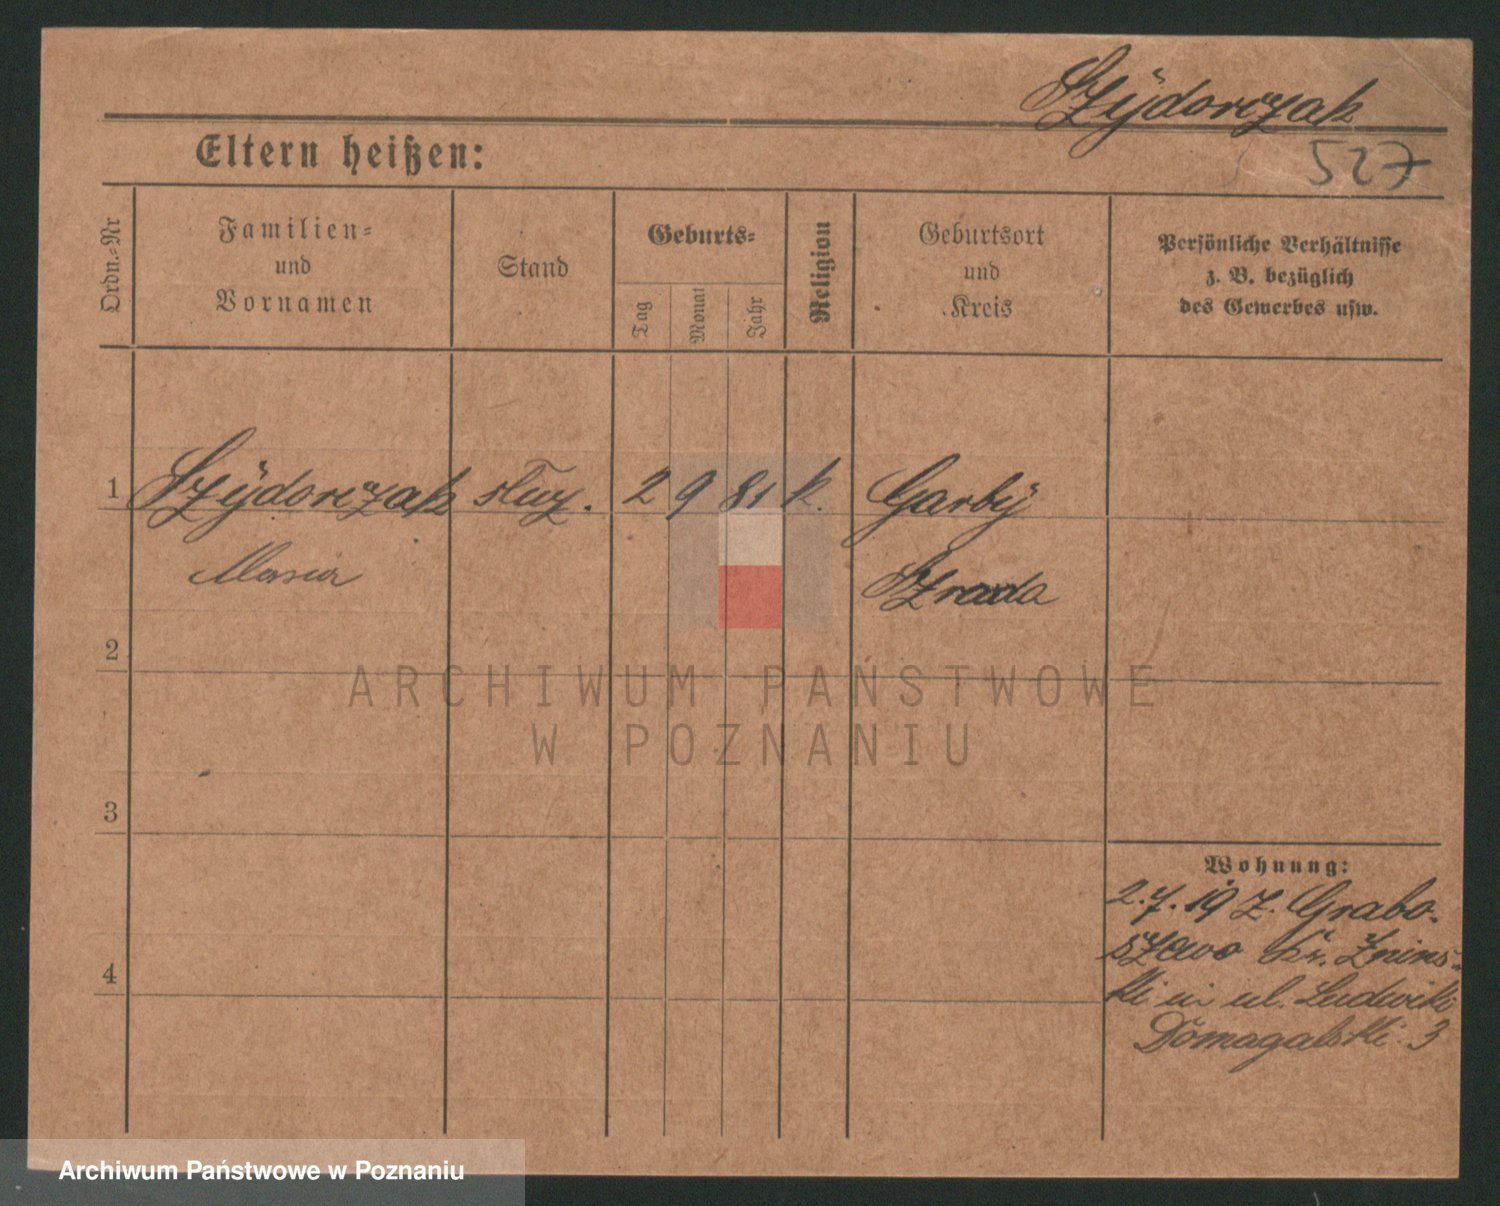 Szÿdorczak
527
Eltern heißen:
Ordn.-Nr
Familien-
und
Vornamen
Stand
Geburts-
Tag
Monat
Jahr
Religion
Geburtsort
und
Kreis
Persönliche Verhältnisse
z. B. bezüglich
des Gewerbes usw.
1 Szÿdorczak służ. 2 9 81 k. Garbÿ
Maria Szroda
2
3
4
Wohnung:
2.7.19 Z. Grabo-
szewo Kr. Żnins-
ki ul. Ludwiki
Domagalski 3
ARCHIWUM PAŃSTWOWE
W POZNANIU
Archiwum Państwowe w Poznaniu